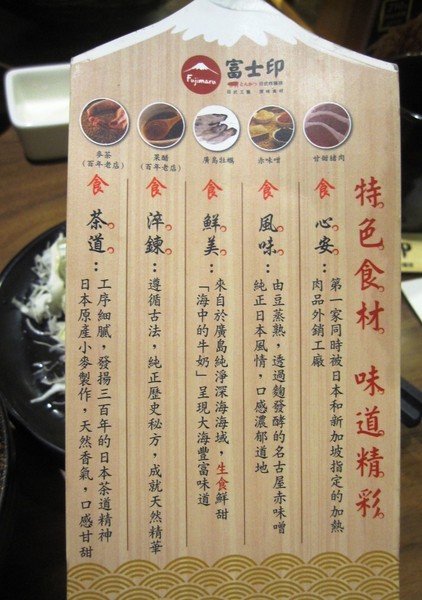 Fujimaru
富士印
麥茶
(百年老店)
果醋
(百年老店)
廣島牡蠣
赤味噌
甘甜豬肉
特色食材 味道精彩
食 心安：
第一家同時被日本和新加坡指定的加熱
肉品外銷工廠
食 風味：
由豆蒸熟，透過麴發酵的名古屋赤味噌
純正日本風情，口感濃郁道地
食 鮮美：
來自於廣島純淨深海海域，生食鮮甜
「海中的牛奶」呈現大海豐富味道
食 淬鍊：
遵循古法，純正歷史秘方，成就天然精華
食 茶道：
工序細膩，發揚三百年的日本茶道精神
日本原產小麥製作，天然香氣，口感甘甜